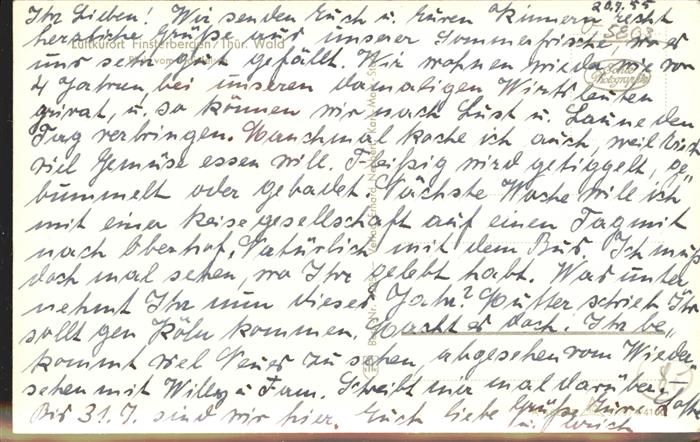 20.7.55
Ihr Lieben! Wir senden Euch u. Euren Kindern recht
herzliche Grüße aus unserer Sommerfrische, wo es
Luftkurort Finsterbergen/Thür. Wald
uns sehr gut gefällt. Wir wohnen wieder wie vor
4 Jahren bei unseren damaligen Wirtsleuten
privat, u. so können wir nach Lust u. Laune den
Tag verbringen. Manchmal koche ich auch, weil
viel Gemüse essen will. Fleißig wird getippelt, ge-
bummelt oder gebadet. Nächste Woche will ich
mit einer Reisegesellschaft auf einen Tag mit
nach Oberhof. Natürlich mit dem Bus. Ich muß
doch mal sehen, wo Ihr gelebt habt. Was unter-
nehmt Ihr nun dieses Jahr? Mutter schrieb Ihr
sollt gen Köln kommen. Macht es doch. Ihr be-
kommt viel Neues zu sehen, abgesehen vom Wieder-
sehen mit Willy u. Fam. Schreibt mir mal darüber.
Bis 31.7. sind wir hier. Euch liebe Grüße Eure Lotte
u. Erich